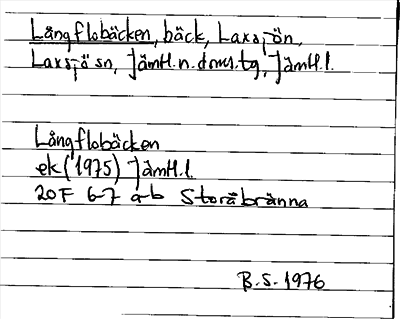 Långflobäcken, bäck, Laxsjön,
Laxsjö sn, Jämtl.n.dms.tg, Jämtl.l.
Långflobäcken
ek (1975) Jämtl.l.
20F 6-7 a-b Storåbränna
B.S. 1976